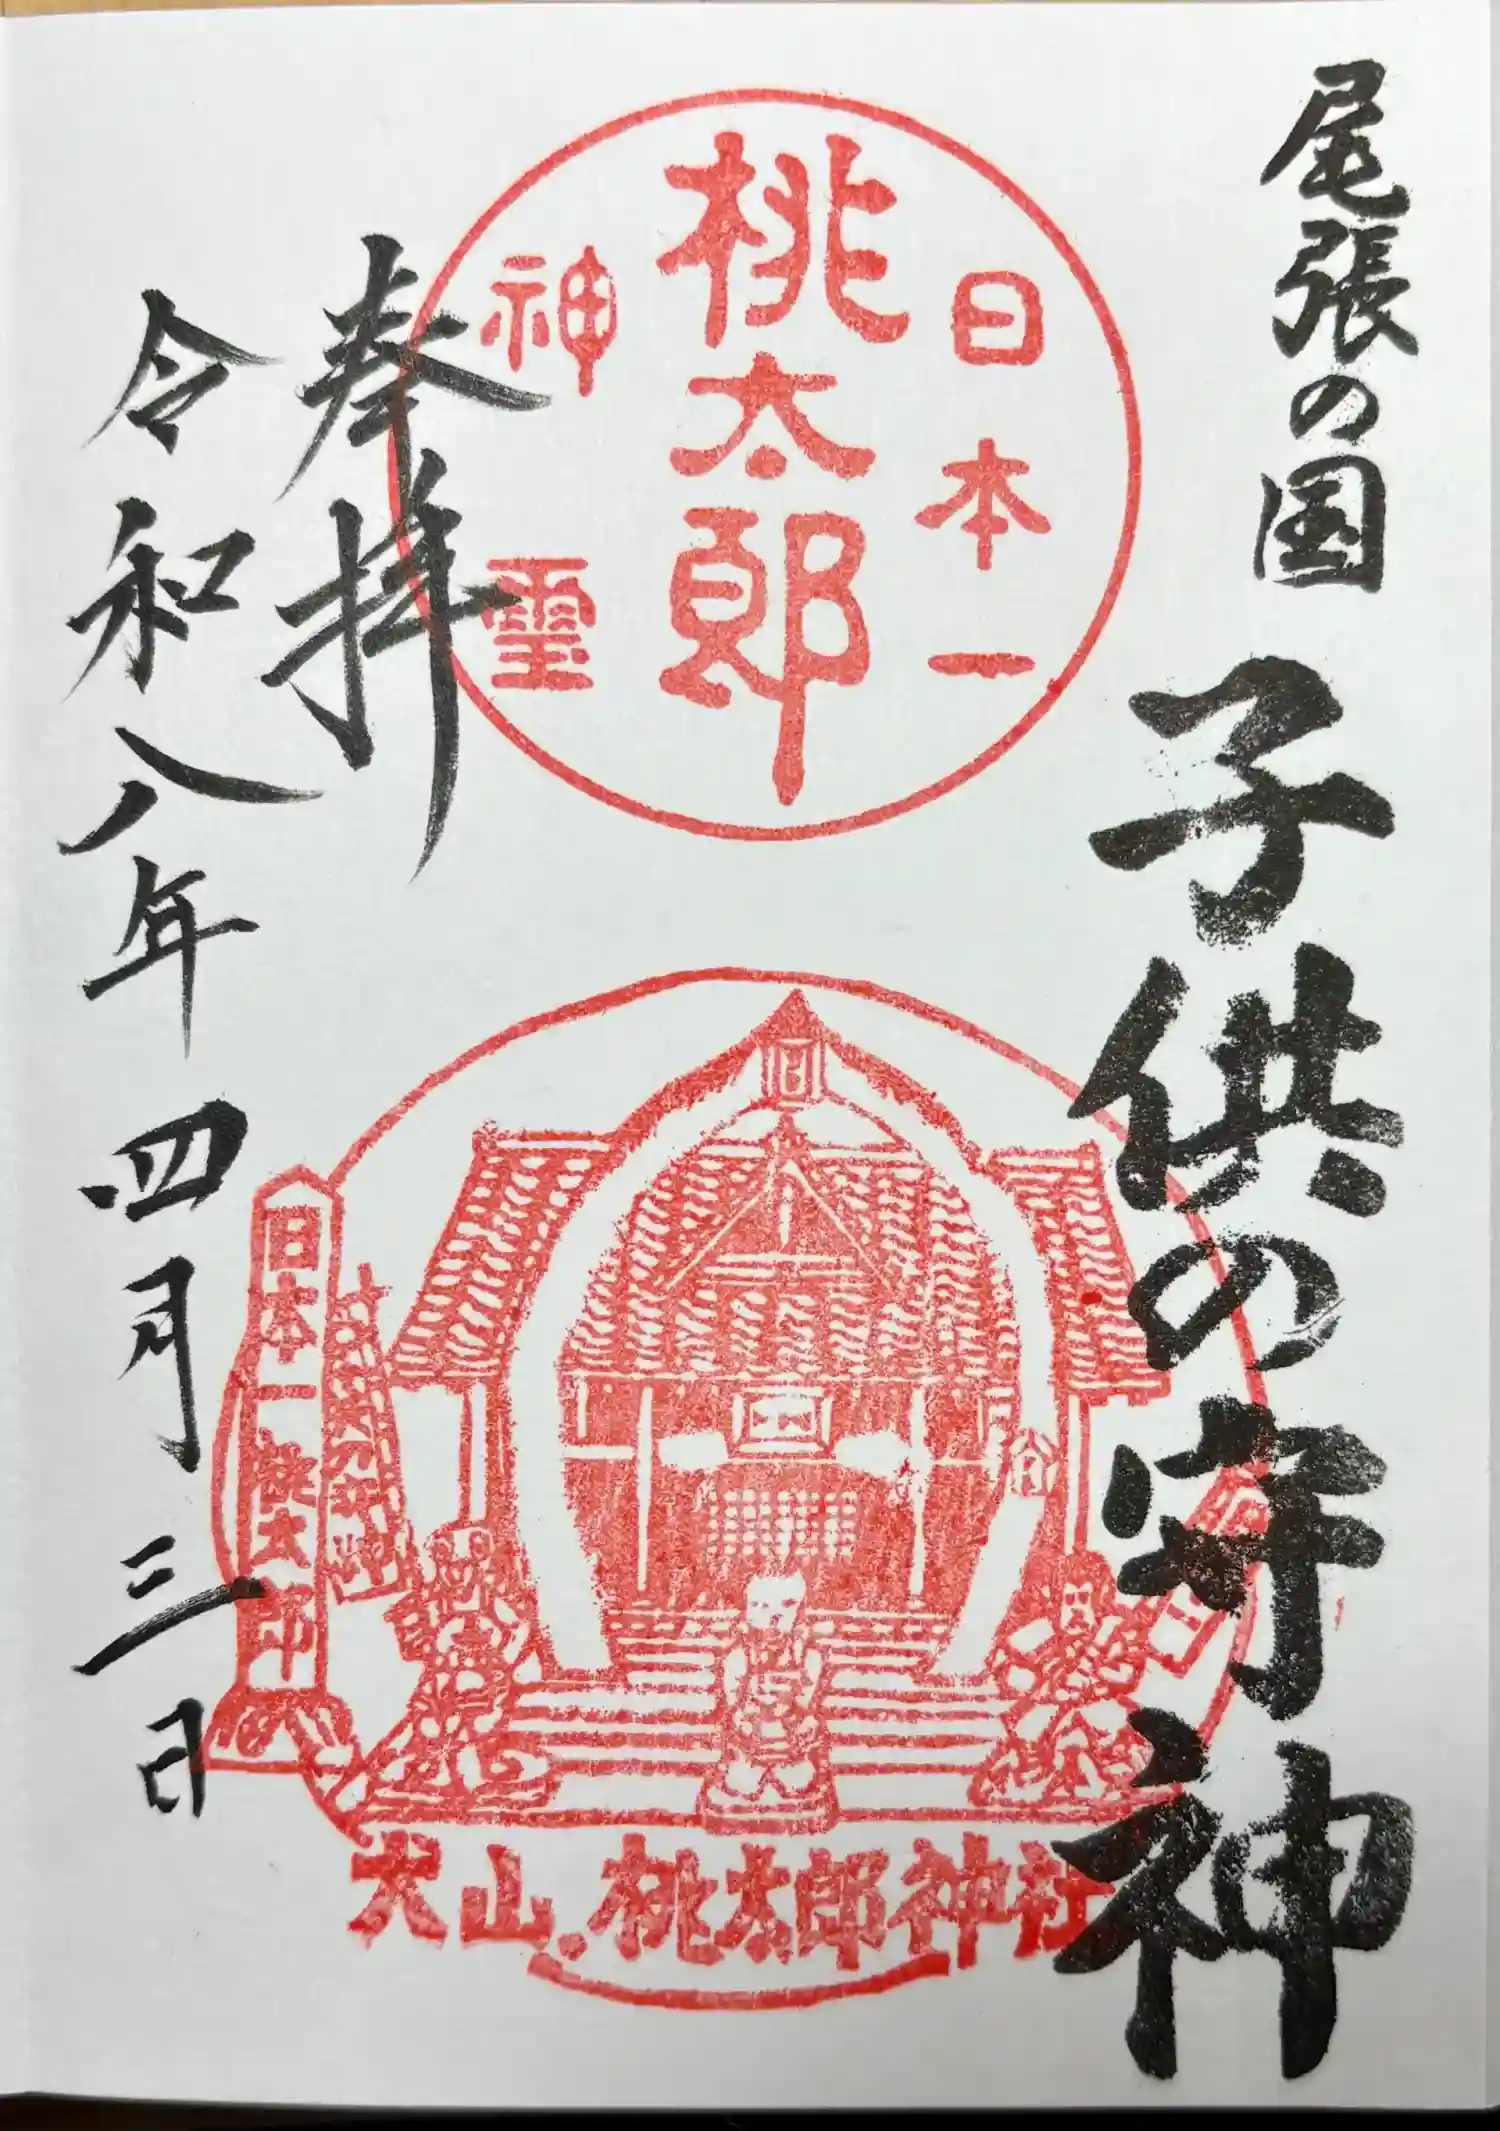 尾張の国
子供の守神
日本一
桃太郎
神霊
奉拝
令和八年四月三日
日本一桃太郎
犬山.桃太郎神社